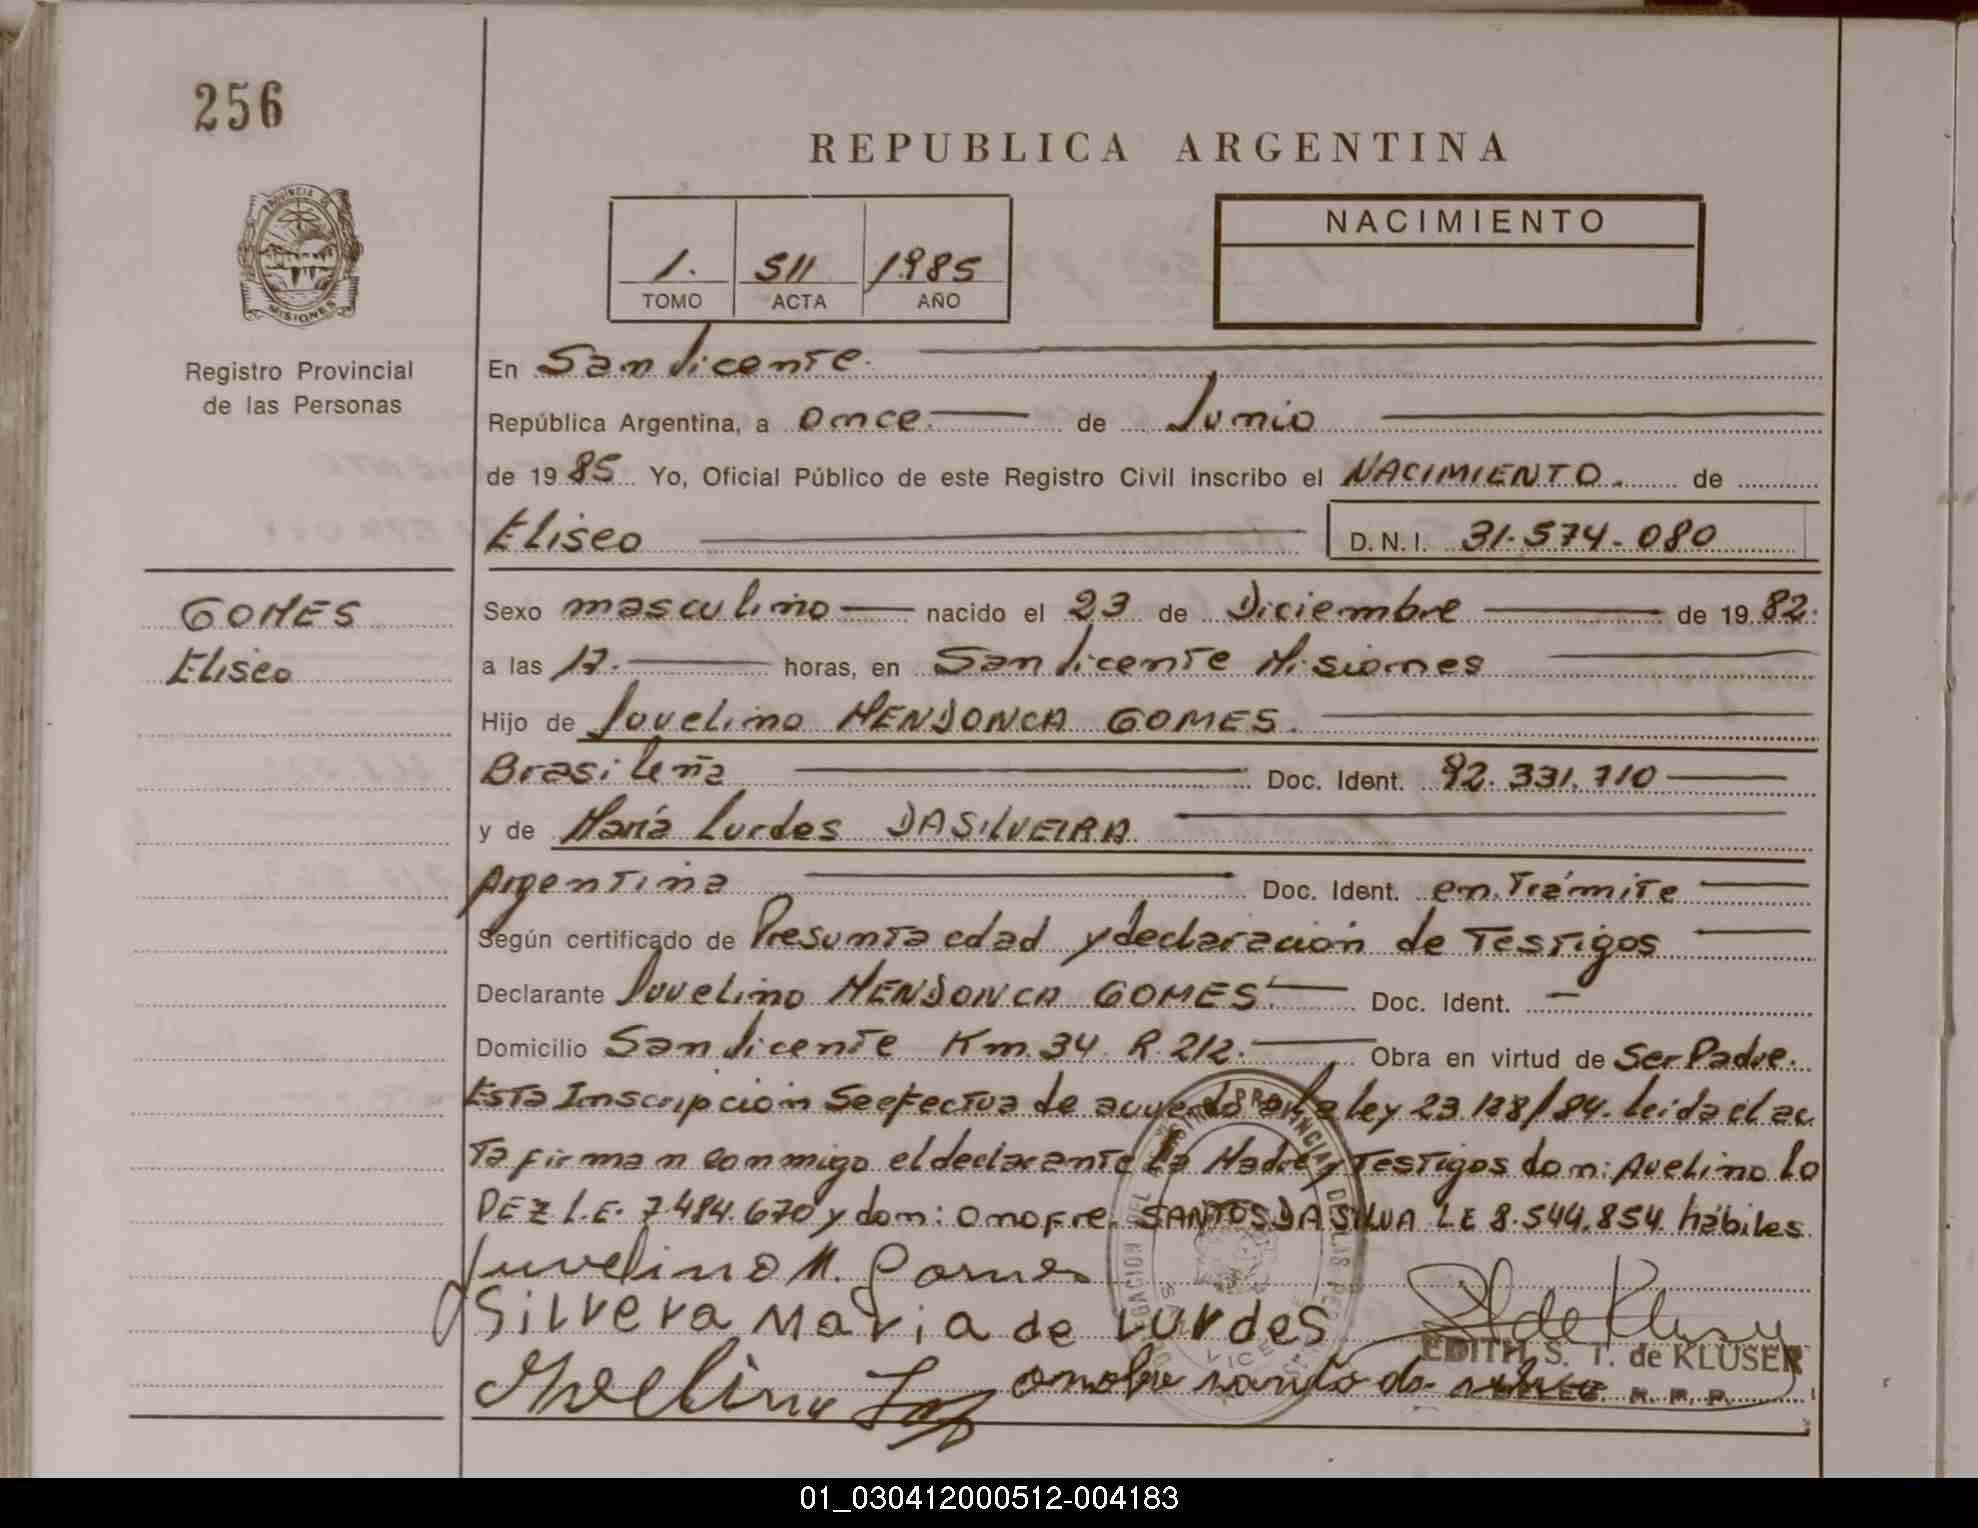 256
REPUBLICA ARGENTINA
PROVINCIA DE
MISIONES
1. 511 1985
TOMO ACTA AÑO
NACIMIENTO
Registro Provincial
de las Personas
En San Vicente.
República Argentina, a once de Junio
de 19 85 Yo, Oficial Público de este Registro Civil inscribo el NACIMIENTO. de
Eliseo D.N.I. 31.574.080
GOMES
Eliseo
Sexo masculino nacido el 23 de Diciembre de 19 82.
a las 17. horas, en San Vicente Misiones
Hijo de Juvelino MENDONCA GOMES.
Brasileña Doc. Ident. 92.331.710
y de María Lurdes DASILVEIRA
Argentina Doc. Ident. en Trámite
Según certificado de Presunta edad y declaración de Testigos
Declarante Juvelino MENDONCA GOMES. Doc. Ident. —
Domicilio San Vicente Km. 34 R. 212. Obra en virtud de Ser Padre.
Esta Inscripción Se efectua de acuerdo a la ley 23.128/84. leida el ac
ta firman conmigo el declarante la Madre y Testigos don: Avelino Lo
PEZ L.E. 7.484.670 y don: Onofre. SANTOS DA SILVA L.E 8.544.854 hábiles
Juvelino M. Gomes
Silvera Maria de Lurdes
EDITH S. T. de KLUSER
Avelino Lopez
01_030412000512-004183